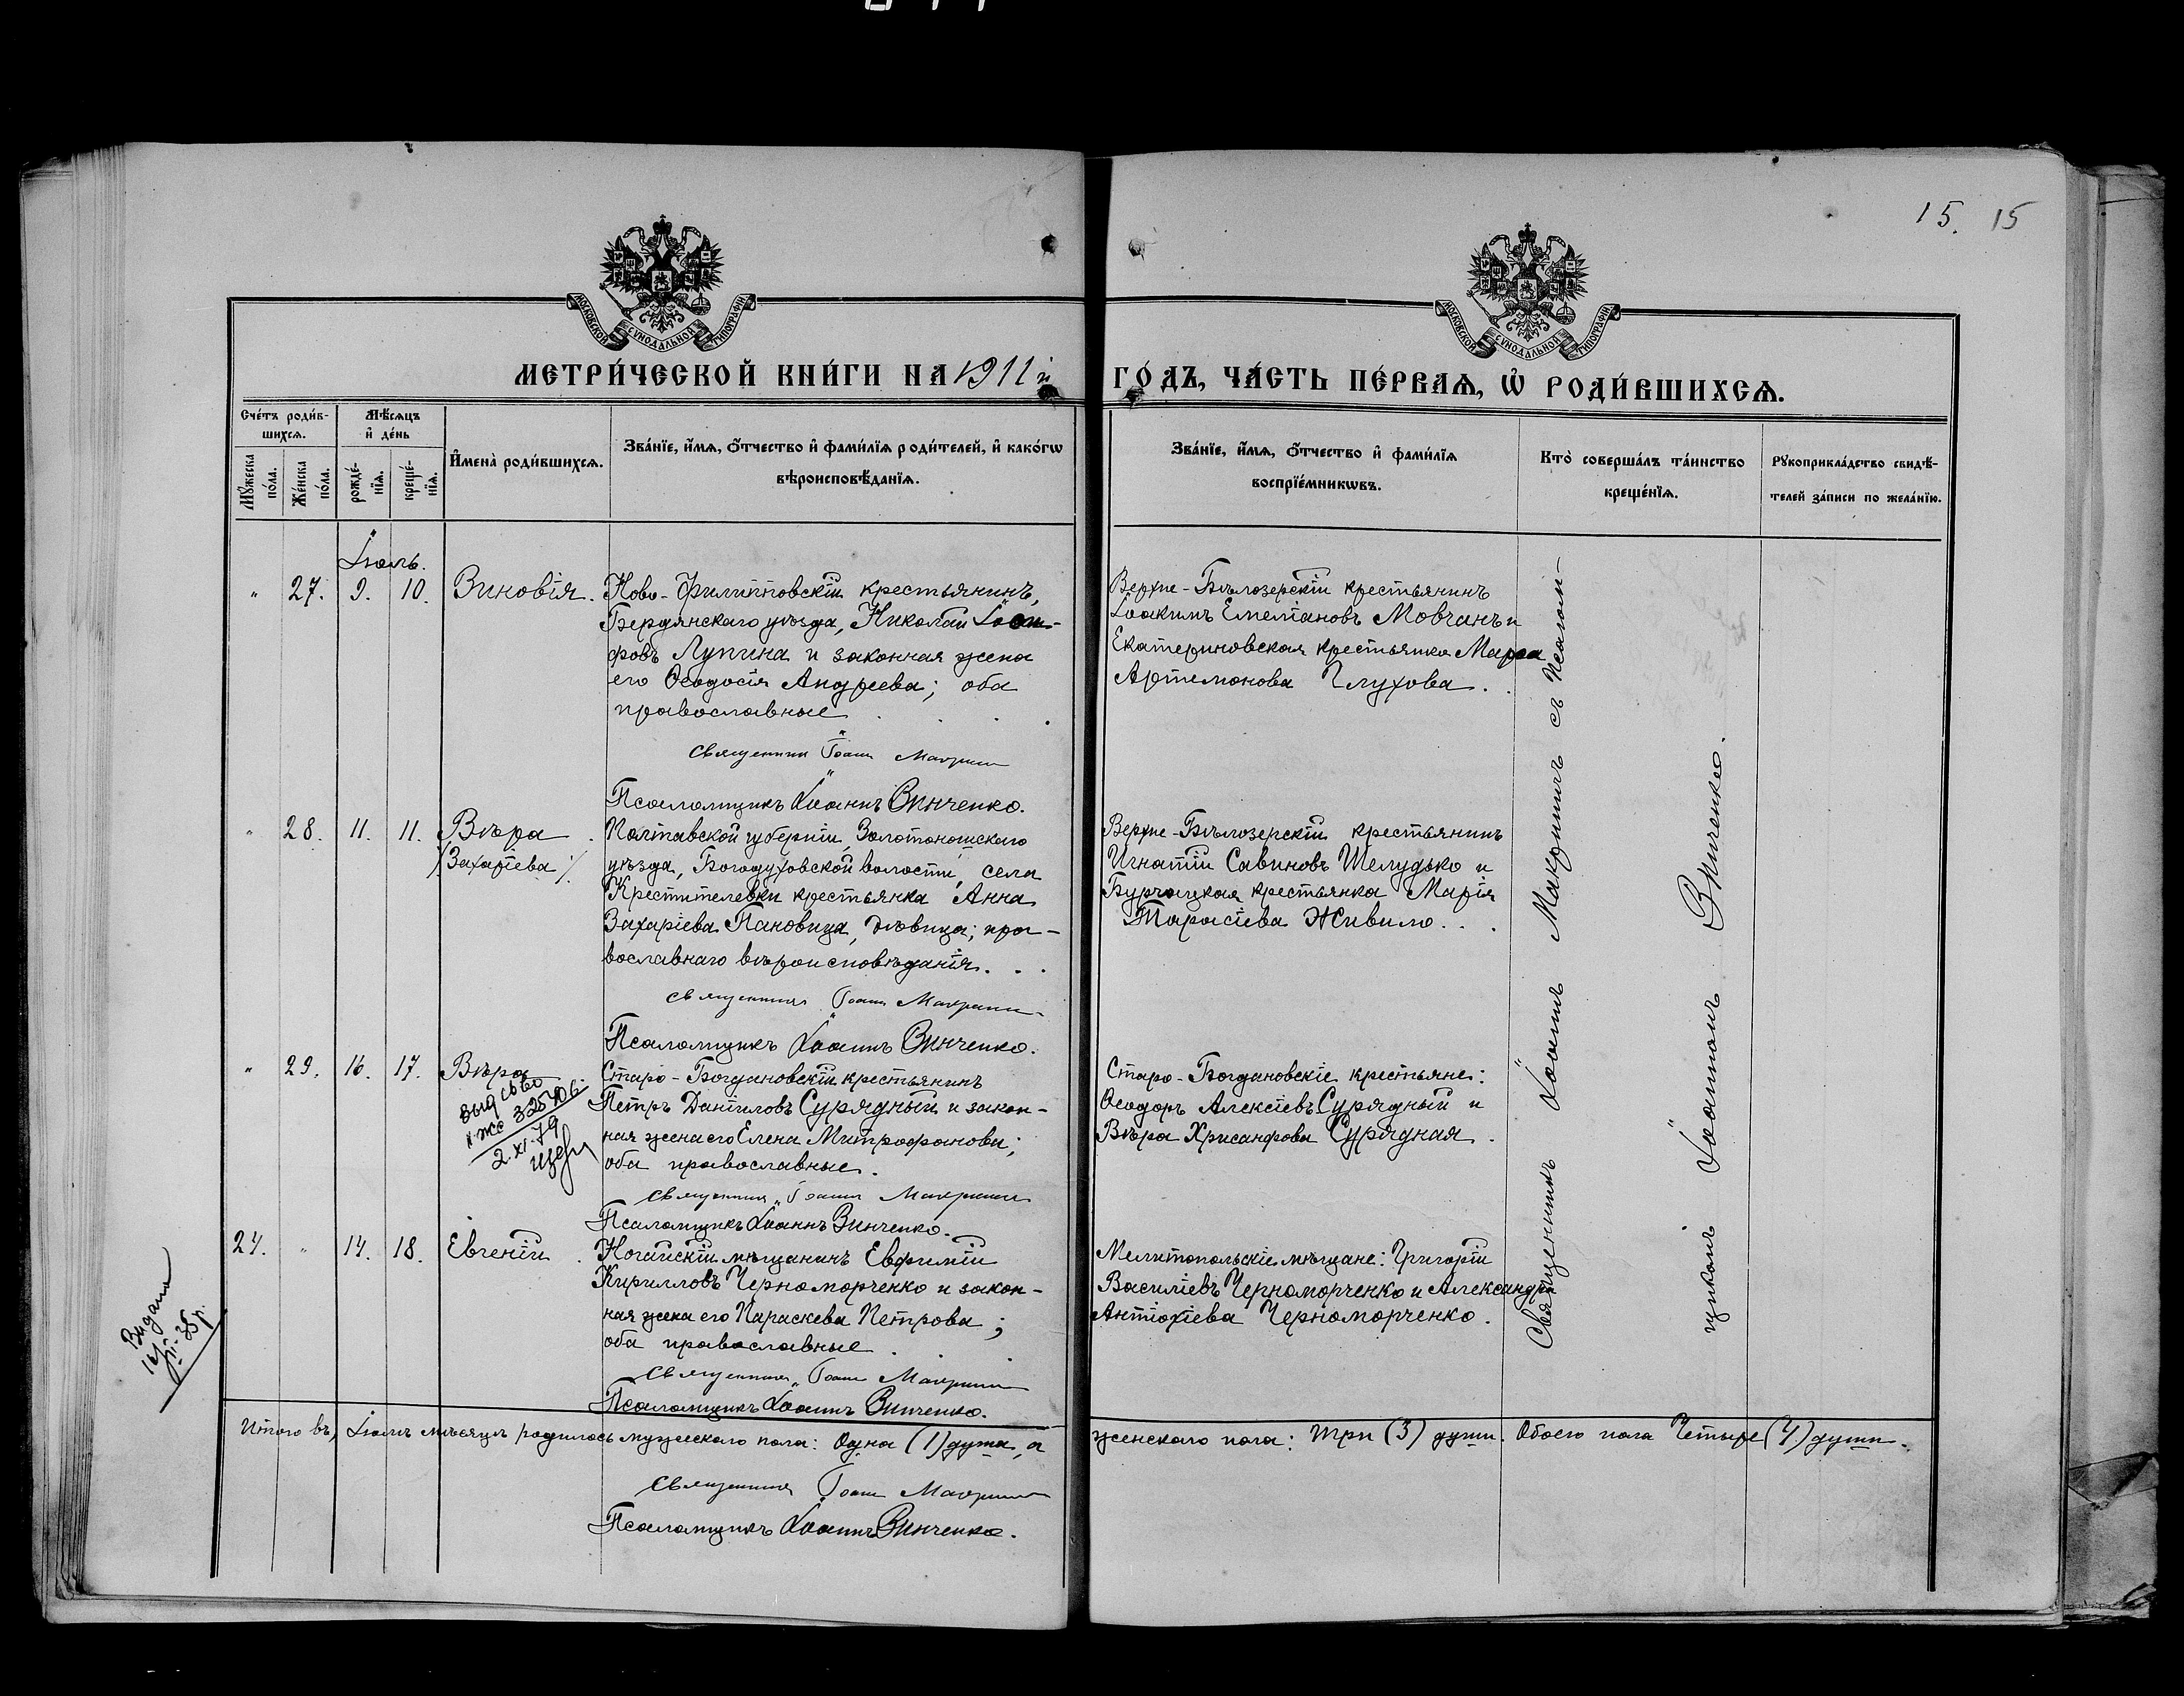 15. 15
МОСКОВСКОЙ СѴНОДАЛЬНОЙ ТИПОГРАФІИ
МОСКОВСКОЙ СѴНОДАЛЬНОЙ ТИПОГРАФІИ
МЕТРИ́ЧЕСКОЙ КНИ́ГИ НА 1911 й ГО́ДЪ, ЧА́СТЬ ПЕ́РВАѦ, Ѡ҆ РОДИ́ВШИХСѦ.
Сче́тъ роди́в-
шихсѧ.
Мꙋ́жеска по́ла.
Же́нска по́ла.
Мѣ́сѧцъ
и҆ де́нь
рожде́-
нїѧ.
креще́-
нїѧ.
И҆мена̀ роди́вшихсѧ.
Зва́нїе, и҆́мѧ, ѻ҆́тчество и҆ фами́лїѧ роди́телей, и҆ како́гѡ
вѣроисповѣ́данїѧ.
Зва́нїе, и҆́мѧ, ѻ҆́тчество и҆ фами́лїѧ
воспрїе́мникѡвъ.
Кто̀ соверша́лъ та́инство
креще́нїѧ.
Рꙋкоприкла́дство свидѣ́-
телей за́писи по жела́нїю.
Іюль.
" 27. 9. 10. Зиновія.
Ново-Филипповскій крестьянинъ,
Бердянскаго уѣзда, Николай Іоси-
фовъ Лупина и законная жена
его Ѳеодосія Андреева; оба
православные
Священникъ Іоаннъ Макринъ
Псаломщикъ Іоаннъ Зинченко.
Верхне-Бѣлозерскій крестьянинъ
Іоакимъ Емеліановъ Мовчанъ и
Екатериновская крестьянка Марѳа
Артемонова Глухова.
" 28. 11. 11. Вѣра
/Захаріева/.
Полтавской губерніи, Золотоношскаго
уѣзда, Богодуховской волости, села
Крестителевки крестьянка Анна
Захаріева Пановица, дѣвица; пра-
вославнаго вѣроисповѣданія.
Священникъ Іоаннъ Макринъ
Псаломщикъ Іоаннъ Зинченко.
Верхне-Бѣлозерскій крестьянинъ
Игнатій Савиновъ Шелудько и
Бурчацкая крестьянка Марія
Тарасіева Живило.
" 29. 16. 17. Вѣра
выд св-во
2.XI.79
Старо-Богдановскій крестьянинъ
Петръ Даніиловъ Сурядный и закон-
ная жена его Елена Митрофанова;
оба православные.
Священникъ Іоаннъ Макринъ
Псаломщикъ Іоаннъ Зинченко.
Старо-Богдановскіе крестьяне:
Ѳеодоръ Алексіевъ Сурядный и
Вѣра Хрисанфова Сурядная.
24. " 14. 18. Евгеній
Ногайскій мѣщанинъ Евфимій
Кирилловъ Черноморченко и закон-
ная жена его Параскева Петрова;
оба православные
Священникъ Іоаннъ Макринъ
Псаломщикъ Іоаннъ Зинченко.
Мелитопольскіе мѣщане: Григорій
Василіевъ Черноморченко и Александра
Антіохіева Черноморченко.
Видана
Священникъ Іоаннъ Макринъ съ Псалом-
щикомъ Іоанномъ Зинченко.
Итого въ Іюлѣ мѣсяцѣ родилось мужескаго пола: Одна (1) душа, а женскаго пола: Три (3) души. Обоего пола Четыре (4) души.
Священникъ Іоаннъ Макринъ
Псаломщикъ Іоаннъ Зинченко.